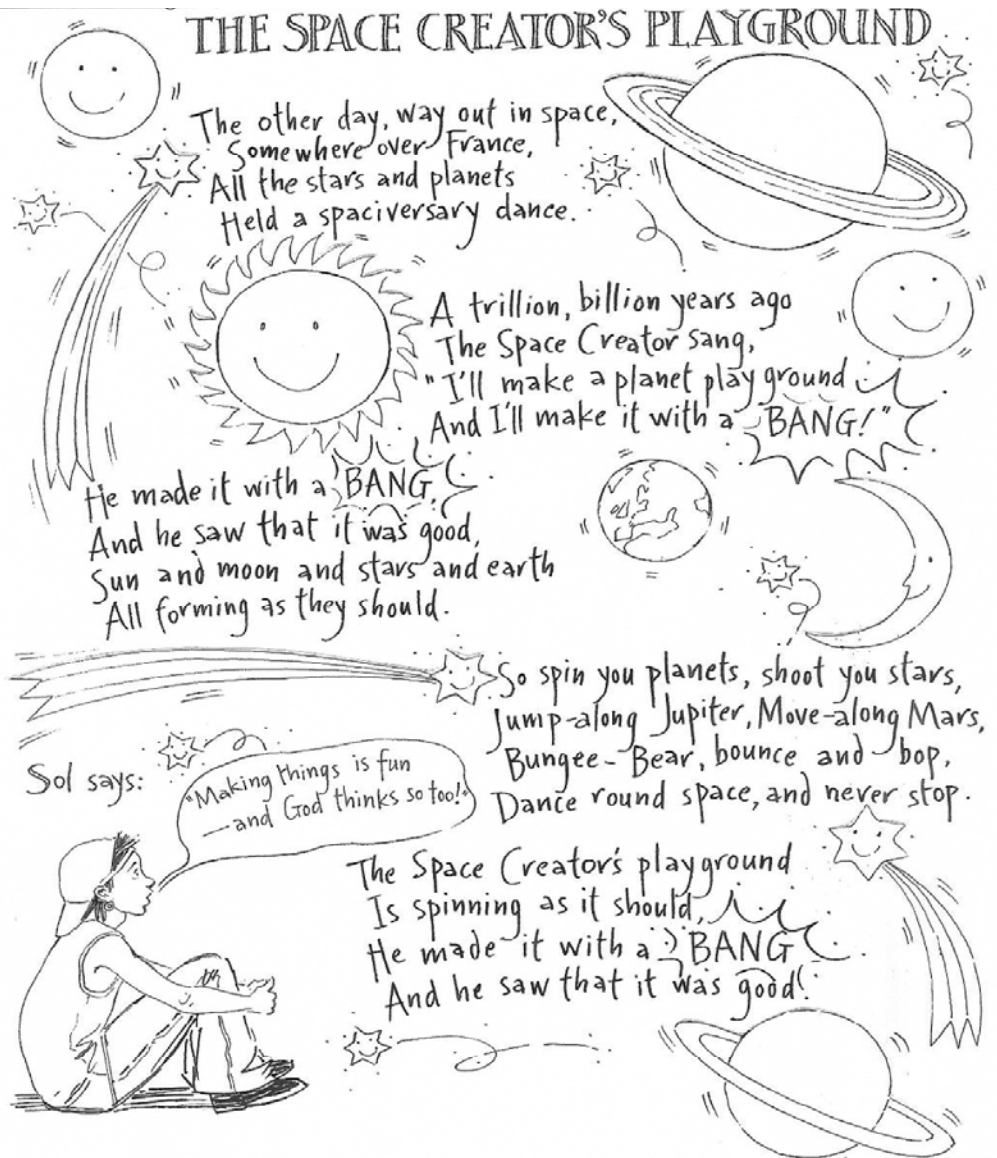 THE SPACE CREATOR'S PLAYGROUND
The other day, way out in space,
Somewhere over France,
All the stars and planets
Held a spaciversary dance.
A trillion, billion years ago
The Space Creator sang,
"I'll make a planet playground
And I'll make it with a BANG!"
He made it with a BANG,
And he saw that it was good,
Sun and moon and stars and earth
All forming as they should.
So spin you planets, shoot you stars,
Jump-along Jupiter, Move-along Mars,
Bungee-Bear, bounce and bop,
Dance round space, and never stop.
Sol says:
"Making things is fun
—and God thinks so too!"
The Space Creator's playground
Is spinning as it should,
He made it with a BANG
And he saw that it was good!